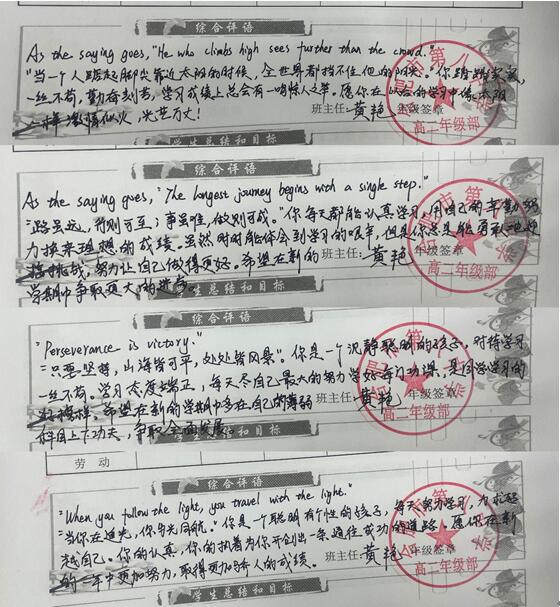 综合评语
As the saying goes, "He who climbs high sees further than the crowd."
"当一个人踮起脚尖靠近太阳的时候，全世界都挡不住他的阳光。"你踏踏实实，
一丝不苟，勤奋刻苦，学习成绩上总会有一鸣惊人之举，愿你在以后的学习中像太阳
一样激情似火，光芒万丈！
班主任：黄艳 年级签章
高二年级部
学生总结和目标
综合评语
As the saying goes, "The longest journey begins with a single step."
"路虽远，行则可至；事虽难，做则可成。"你每天都能认真学习，用自己的辛勤努
力换来理想的成绩。虽然时时能体会到学习的艰辛，但是你总是能勇敢地迎
接挑战，努力让自己做得更好。希望在新的
学期中争取更大的进步。
班主任：黄艳 年级签章
高二年级部
学生总结和目标
综合评语
"Perseverance is victory."
"只要坚持，山海皆可平，处处皆风景。"你是一个沉静聪明的孩子，对待学习
一丝不苟。学习态度端正，每天尽自己最大的努力学好每门功课，是同学学习的
好榜样。希望在新的学期中多在自己的薄弱
科目上下功夫，争取全面发展。
班主任：黄艳 年级签章
高二年级部
学生总结和目标
劳动
综合评语
"When you follow the light, you travel with the light."
"当你在追光，你与光同航。"你是一个聪明有个性的孩子，每天努力学习，力求超
越自己。你的认真，你的执着为你开创出一条通往成功的道路。愿你在新
的一年中更加努力，取得更加惊人的成绩。
班主任：黄艳 年级签章
高二年级部
学生总结和目标